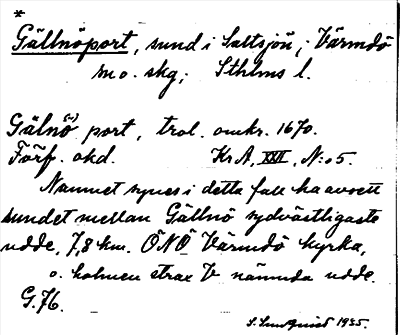 *
Gällnöport, sund i Saltsjön, i Värmdö
m o. skg; Sthlms l.
Gälnö(n) port, trol. omkr. 1670.
Förf. okd. Kr A, XXII, N:o 5.
Namnet synes i detta fall ha avsett
sundet mellan Gällnö sydvästligaste
udde, 7,8 km. ÖNÖ Värmdö kyrka,
o. holmen strax V nämnda udde.
G. 76.
S. Sundquist 1935.